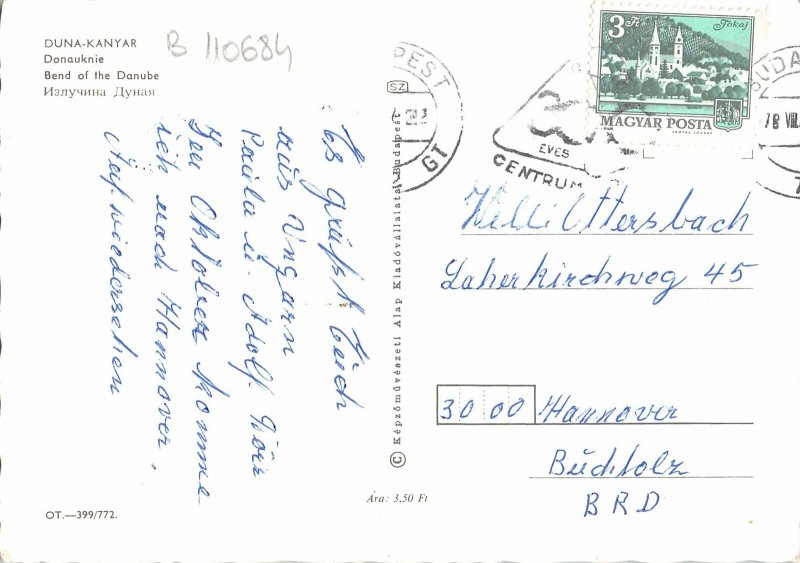 DUNA-KANYAR
Donauknie
Bend of the Danube
Излучина Дуная
B 110684
Es grüsst Euch
aus Ungarn
Paula u. Adolf
Im Oktober komme
ich nach Hannover.
Auf wiedersehen
OT.—399/772.
© Képzőművészeti Alap Kiadóvállalata, Budapest
SZ
Ára: 3,50 Ft
BUDAPEST
GT
30
ÉVES
CENTRUM
3 Ft
Tokaj
MAGYAR POSTA
BUDA
78 VIII
Willi Ottersbach
Laherkirchweg 45
3000 Hannover
Buchholz
BRD